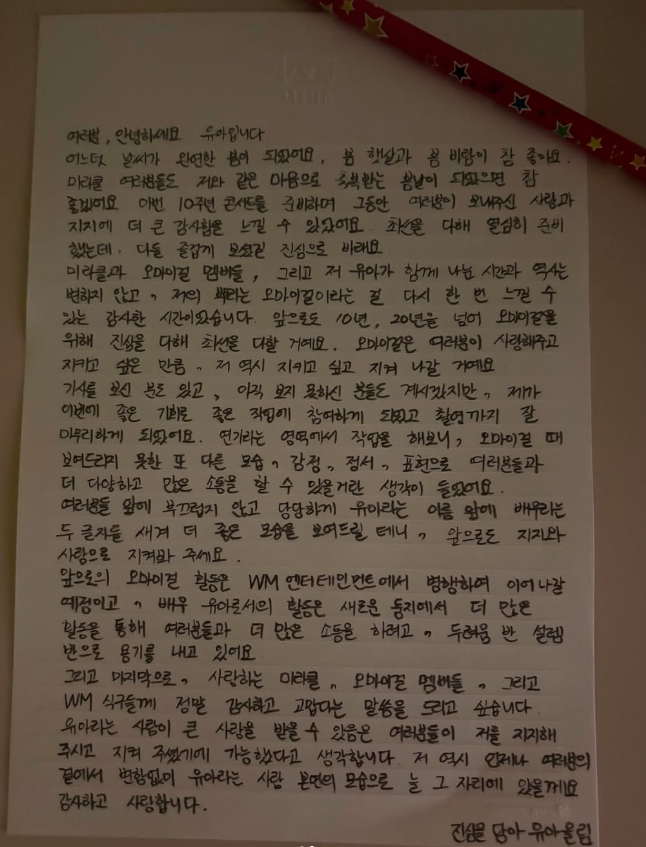 여러분, 안녕하세요 유아입니다
어느덧 날씨가 완연한 봄이 되었어요, 봄 햇살과 봄 바람이 참 좋아요.
미라클 여러분들도 저와 같은 마음으로 축복받는 봄날이 되었으면 참
좋겠어요 이번 10주년 콘서트를 준비하며 그동안 여러분이 보내주신 사랑과
지지에 더 큰 감사함을 느낄 수 있었어요. 최선을 다해 열심히 준비
했는데. 다들 즐겁게 보셨길 진심으로 바래요
미라클과 오마이걸 멤버들, 그리고 저 유아가 함께 나눈 시간과 역사는
변하지 않고, 저의 뿌리는 오마이걸이라는 걸 다시 한 번 느낄 수
있는 감사한 시간이었습니다. 앞으로도 10년, 20년을 넘어 오마이걸을
위해 진심을 다해 최선을 다할 거예요. 오마이걸은 여러분이 사랑해주고
지키고 싶은 만큼, 저 역시 지키고 싶고 지켜 나갈 거예요
기사를 보신 분도 있고, 아직 보지 못하신 분들도 계시겠지만, 제가
이번에 좋은 기회로 좋은 작업에 참여하게 되었고 촬영까지 잘
마무리하게 되었어요. 연기라는 영역에서 작업을 해보니, 오마이걸 때
보여드리지 못한 또 다른 모습, 감정, 정서, 표현으로 여러분들과
더 다양하고 많은 소통을 할 수 있을거란 생각이 들었어요.
여러분들 앞에 부끄럽지 않고 당당하게 유아라는 이름 앞에 배우라는
두 글자를 새겨 더 좋은 모습을 보여드릴 테니, 앞으로도 지지와
사랑으로 지켜봐 주세요.
앞으로의 오마이걸 활동은 WM 엔터테인먼트에서 병행하여 이어나갈
예정이고, 배우 유아로서의 활동은 새로운 둥지에서 더 많은
활동을 통해 여러분들과 더 많은 소통을 하려고, 두려움 반 설렘
반으로 용기를 내고 있어요
그리고 마지막으로, 사랑하는 미라클, 오마이걸 멤버들, 그리고
WM 식구들께 정말 감사하고 고맙다는 말씀을 드리고 싶습니다
유아라는 사람이 큰 사랑을 받을 수 있음은 여러분들이 저를 지지해
주시고 지켜 주셨기에 가능했다고 생각합니다. 저 역시 언제나 여러분의
곁에서 변함없이 유아라는 사람 본연의 모습으로 늘 그 자리에 있을게요
감사하고 사랑합니다.
진심을 담아 유아 올림